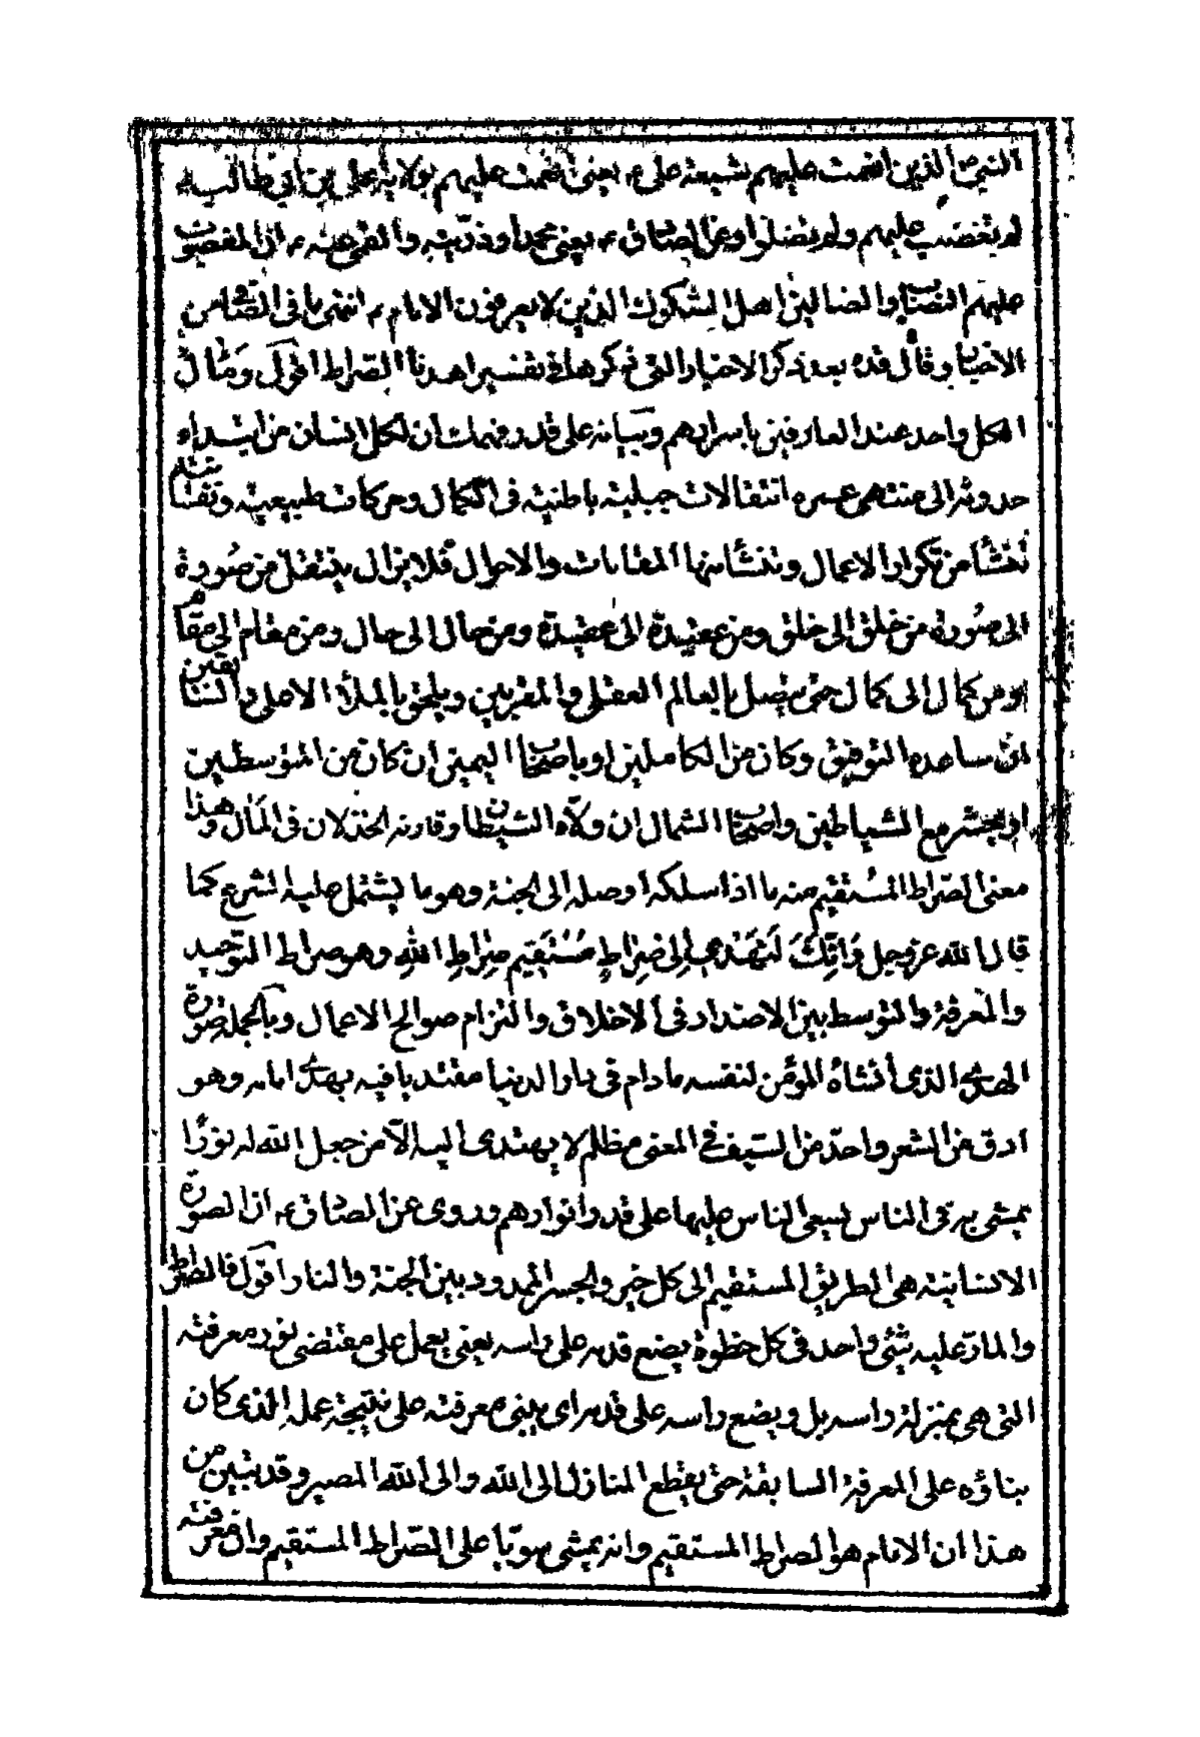 النبي ص الذين انعمت عليهم شيعة علي ع يعني انعمت عليهم بولاية علي بن ابي طالب ع
لم يغضب عليهم ولم يضلوا وعن الصادق ع يعني محمدا وذريته والقمي عنه ع ان المغضوب
عليهم النصاب والضالين اهل الشكوك الذين لا يعرفون الامام ع انتهى ما في الصافي من
الاخبار وقال قده بعد ذكر الاخبار التي ذكرها في تفسير اهدنا الصراط اقول وَمَالُ
الكل واحد عند العارفين باسرارهم وبيانه على قدر فهمك ان لكل انسان من ابتداء
حدوثه الى منتهى عمره انتقالات جبلية باطنية في الكمال وحركات طبيعية ونفسانية
تنشأ من تكرار الاعمال وتنشأ منها المقامات والاحوال فلا يزال ينتقل من صُورة
الى صُورة من خلق الى خلق ومن عقيدة الى عقيدة ومن حال الى حال ومن مقام الى مقام
ومن كمال الى كمال حتى يتصل بالعالم العقلي والمقربين ويلحق بالملأ الاعلى والسابقين
ان ساعده التوفيق وكان من الكاملين او باصحاب اليمين ان كان من المتوسطين
او يحشر مع الشياطين واصحاب الشمال ان ولاّه الشيطان وقارنه الخذلان في المَال وهذا
معنى الصّراط المُستقيم منه ما اذا سلكه اوصله الى الجنة وهو ما يشتمل عليه الشرع كما
قال الله عز وجل وَاِنَّكَ لَتَهْدي اِلى صِرَاطٍ مُسْتَقِيم صِرَاطِ اللهِ وهو صراط التوحيد
والمعرفة والتوسط بين الاضداد في الاخلاق والتزام صوالح الاعمال وبالجملة صورة
الهدى الذي أنشأهُ المؤمن لنفسه ما دام في دار الدنيا مقتديا فيه بهدى امامه وهو
ادق من الشعر واحدّ من السيف في المعنى مظلم لا يهتدى اليه الاّ من جعل الله له نورًا
يمشي به في الناس يسعى الناس عليها على قدر انوارهم وروي عن الصادق ع ان الصورة
الانسانية هي الطريق المستقيم الى كل خير والجسر الممدود بين الجنة والنار اقول فالصراط
والمارّ عليه شئ واحد في كل خطوة يضع قدمه على راسه يعني يعمل على مقتضى نور معرفته
التي هي بمنزلة راسه بل ويضع راسه على قدمه اي يبني معرفته على نتيجة عمله الذي كان
بناؤه على المعرفة السابقة حتى يقطع المنازل الى الله والى الله المصير وقد تبين من
هذا ان الامام هو الصراط المستقيم وانه يمشي سويّا على الصّراط المستقيم وان معرفته